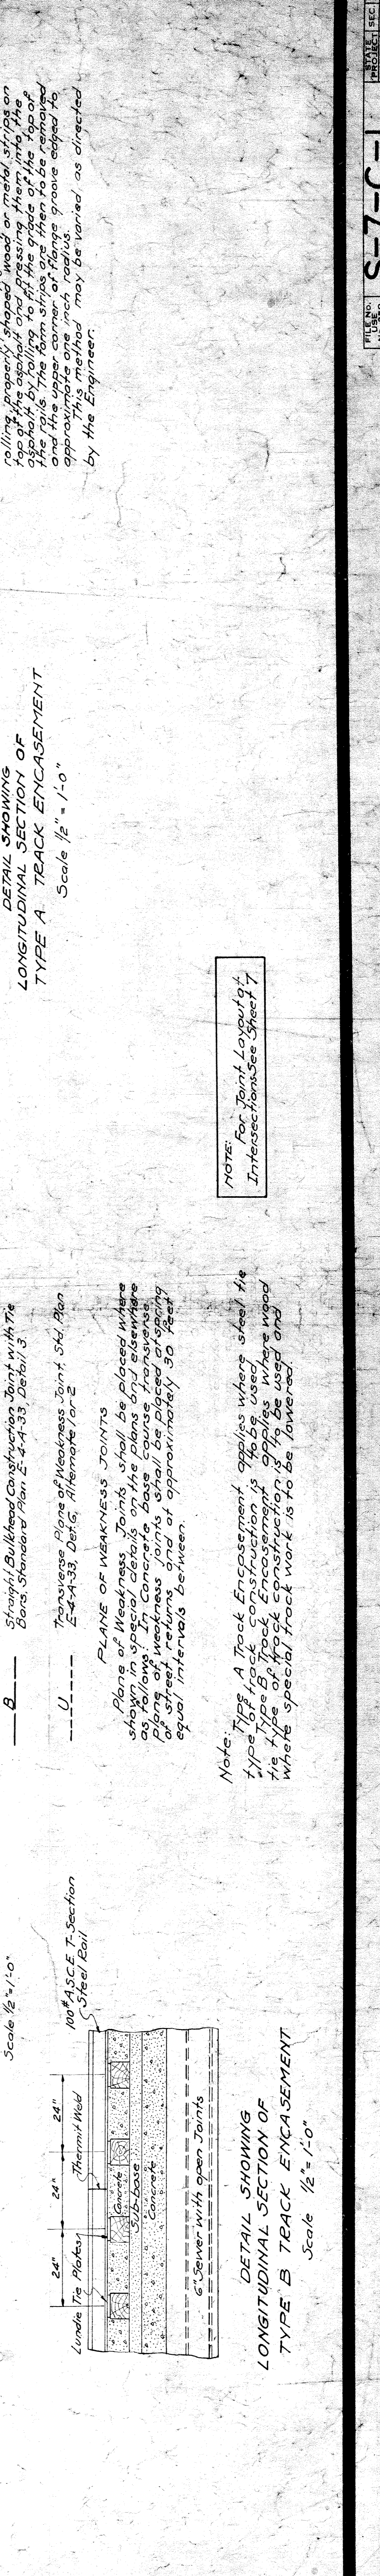 Scale 1/2"=1'-0"
24" 24" 24"
Lundie Tie Plates
Thermit Weld
100# A.S.C.E. T-Section
Steel Rail
Concrete
Sub-base
Concrete
6" Sewer with open Joints
DETAIL SHOWING
LONGITUDINAL SECTION OF
TYPE B TRACK ENCASEMENT
Scale 1/2"=1'-0"
B Straight Bulkhead Construction Joint with Tie
Bars, Standard Plan E-4-A-33, Detail 3.
U Transverse Plane of Weakness Joint, Std. Plan
E-4-A-33, Det.G, Alternate 1 or 2
PLANE OF WEAKNESS JOINTS
Plane of Weakness Joints shall be placed where
shown in special details on the plans and elsewhere
as follows: In Concrete base course transverse
plane of weakness joints shall be placed at spring
of street returns and at approximately 30 feet
equal intervals between.
Note:
Type A Track Encasement applies where steel tie
type of track construction is to be used.
Type B Track Encasement applies where wood
tie type of track construction is to be used and
where special track work is to be lowered.
NOTE:
For Joint Layout at
Intersections See Sheet 7
DETAIL SHOWING
LONGITUDINAL SECTION OF
TYPE A TRACK ENCASEMENT
Scale 1/2"=1'-0"
rolling properly shaped wood or metal strips on
top of the asphalt and pressing them into the
asphalt by rolling to fit the grade of the top of
the rails. The form strips are then to be removed
and the upper corner of flange groove edged to
approximate one inch radius.
This method may be varied as directed
by the Engineer.
FILE NO.
USE
STATE
PROJECT
SEC.